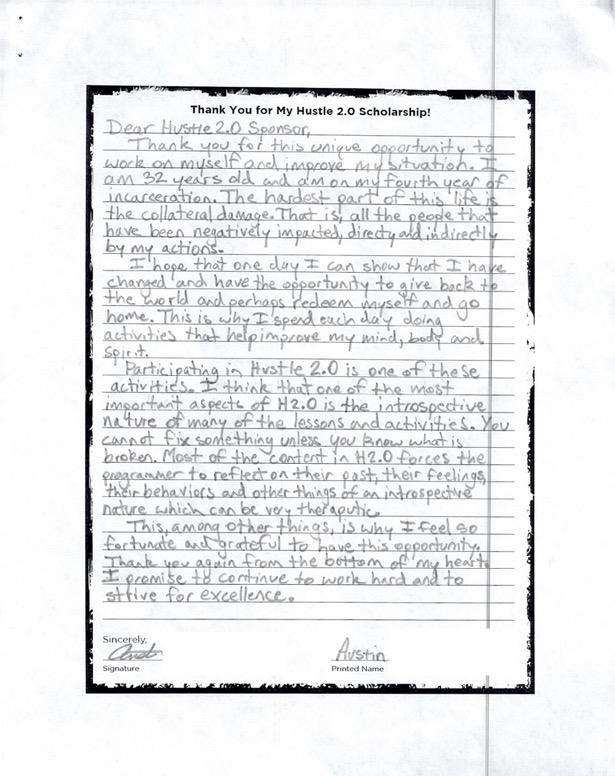 Thank You for My Hustle 2.0 Scholarship!
Dear Hustle 2.0 Sponsor,
Thank you for this unique opportunity to
work on myself and improve my situation. I
am 32 years old and am on my fourth year of
incarceration. The hardest part of this life is
the collateral damage. That is, all the people that
have been negatively impacted, directy and indirectly
by my actions.
I hope that one day I can show that I have
changed and have the opportunity to give back to
the world and perhaps redeem myself and go
home. This is why I spend each day doing
activities that help improve my mind, body and
spirit.
Participating in Hustle 2.0 is one of these
activities. I think that one of the most
important aspects of H2.0 is the introspective
nature of many of the lessons and activities. You
cannot fix something unless you know what is
broken. Most of the content in H2.0 forces the
programmer to reflect on their past, their feelings,
their behaviors and other things of an introspective
nature which can be very theraputic.
This, among other things, is why I feel so
fortunate and grateful to have this opportunity.
Thank you again from the bottom of my heart.
I promise to continue to work hard and to
strive for excellence.
Sincerely,
Austin
Signature
Printed Name